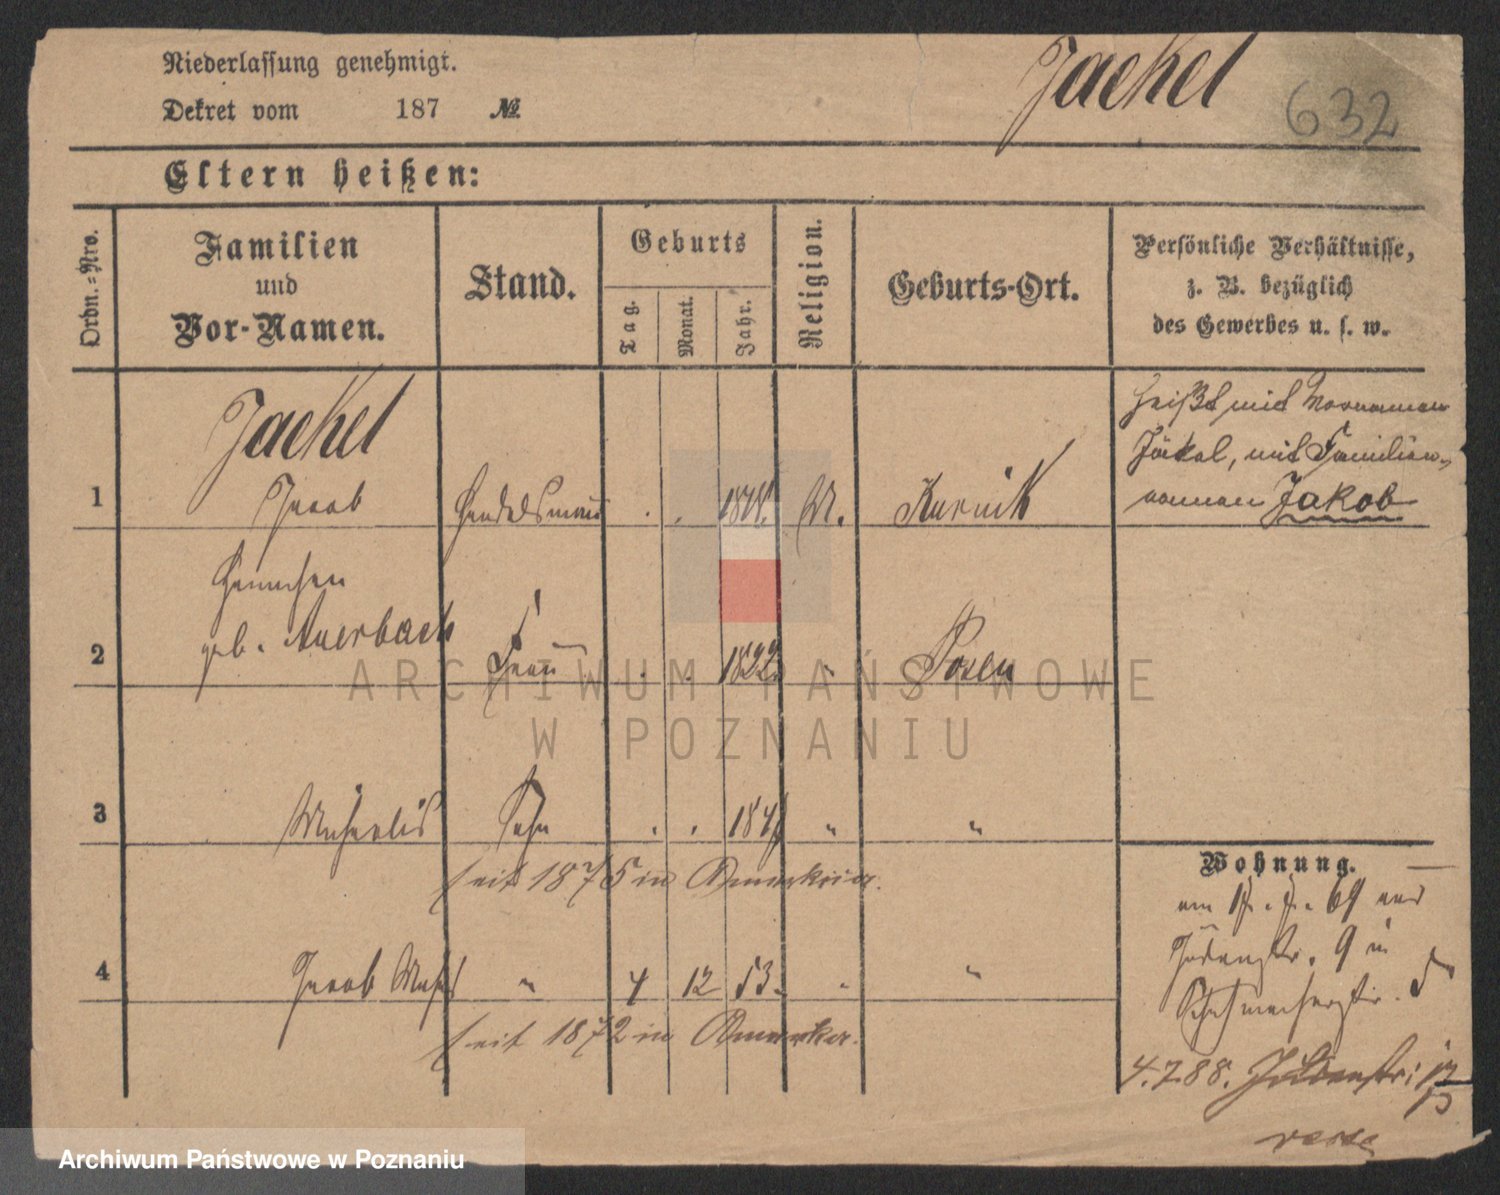 Niederlassung genehmigt.
Dekret vom 187 №
Jaekel
632
Eltern heißen:
Ordn.=Nro.
Familien
und
Vor-Namen.
Stand.
Geburts
Tag.
Monat.
Jahr.
Religion.
Geburts-Ort.
Persönliche Verhältnisse,
z. B. bezüglich
des Gewerbes u. s. w.
Jaekel
1 Jacob Handelsmann . . M. Kurnik
heißt mit Vornamen
Jäkel, mit Familien-
namen Jakob
Hannchen
geb. Auerbach
2 Frau . . 1822 " Posen
3 Michaelis Sohn . . " "
seit 1875 in Amerika.
4 Jacob " 4 12 53. " "
seit 1872 in Amerika.
Wohnung.
am 69 aus
Judenstr. 9 in
Schuhmacherstr.
4.7.88. Judenstr:
ARCHIWUM PAŃSTWOWE
W POZNANIU
Archiwum Państwowe w Poznaniu